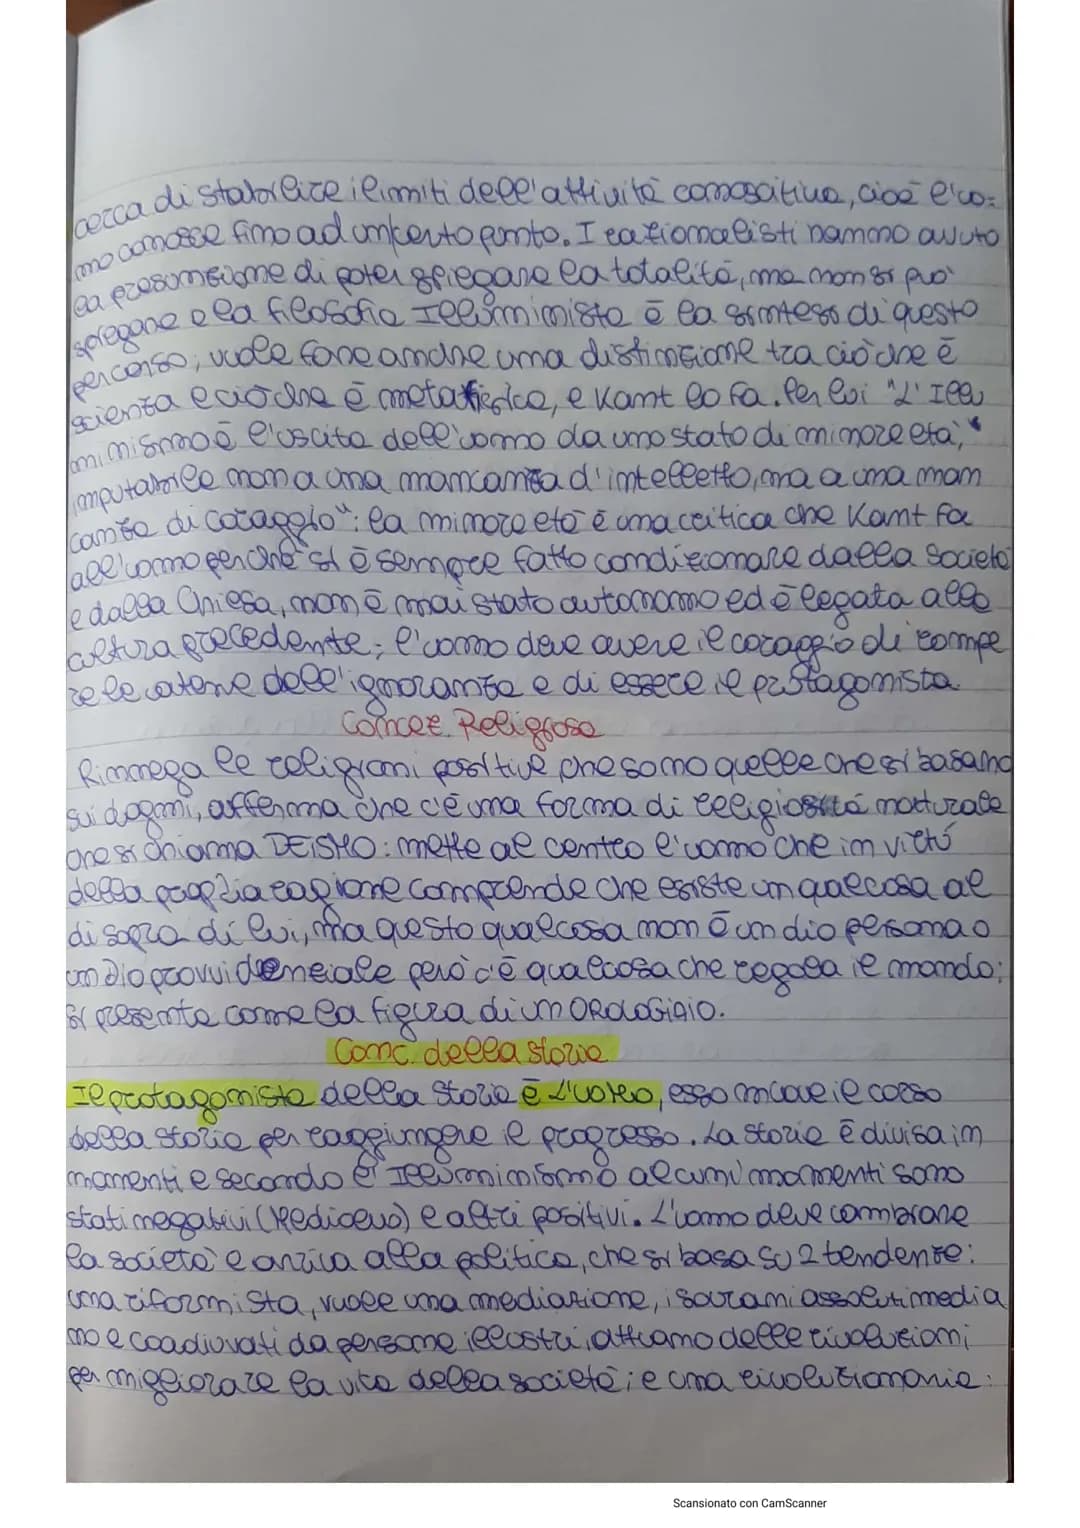 cerca di stabilire i limiti dell'attività conoscitiva, cioè l'uo-
mo conosce fino ad un certo punto. I razionalisti hanno avuto
la presunzione di poter spiegare la totalità, ma non si può
spiegare e la filosofia Illuminista è la sintesi di questo
percorso, vuole fare anche una distinzione tra ciò che è
scienza e ciò che è metafisica, e Kant lo fa. Per lui "L'Illu
minismo è l'uscita dell'uomo da uno stato di minore età,
imputabile non a una mancanza d'intelletto, ma a una man
canza di coraggio": la minore età è una critica che Kant fa
all'uomo perché si è sempre fatto condizionare dalla società
e dalla Chiesa, non è mai stato autonomo ed è legata alla
cultura precedente; l'uomo deve avere il coraggio di rompe
re le catene dell'ignoranza e di essere il protagonista
Concez. Religiosa
Rinnega le religioni positive, che sono quelle che si basano
sui dogmi, afferma che c'è una forma di religiosità naturale
che si chiama DEISMO: mette al centro l'uomo che in virtù
della propria ragione comprende che esiste un qualcosa al
di sopra di lui, ma questo qualcosa non è un dio persona o
un dio provvidenziale però c'è qualcosa che regola il mondo;
si presenta come la figura di un OROLOGIAIO.
Conc. della storia
Il protagonista della storia è L'UOMO, esso muove il corso
della storia per raggiungere il progresso. La storia è divisa in
momenti e secondo l'Illuminismo alcuni momenti sono
stati negativi (Medioevo) e altri positivi. L'uomo deve cambiare
la società e arriva alla politica, che si basa su 2 tendenze:
una riformista, vuole una mediazione, i sovrani assoluti media
no e coadiuvati da persone illustri, attuano delle rivoluzioni
per migliorare la vita della società; e una rivoluzionaria:
Scansionato con CamScanner